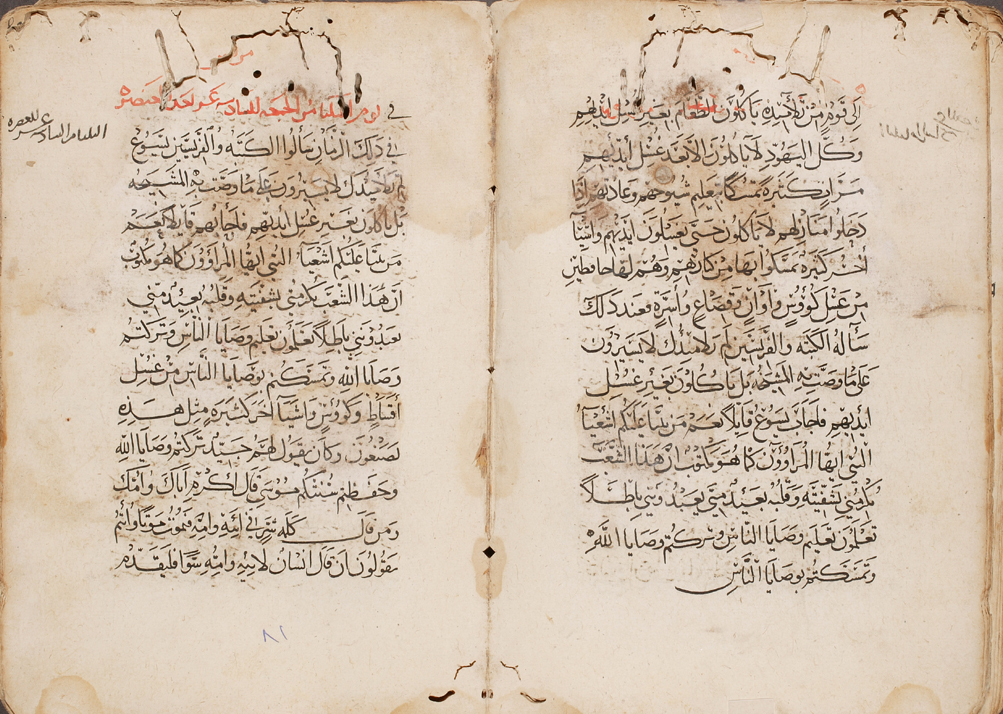 الى قوم من تلاميذه ياكلون الطعام بغير غسل ايديهم
وكل اليهود لا ياكلون الا بعد غسل ايديهم
دخلوا منازلهم لا ياكلون حتى يغسلون ايديهم واشيا
اخر كثيره تمسكوا بها من كارهم وهم لها حافظين
من غسل كووس واوان وقصاع واسره فعند ذلك
ساله الكتبه والفريسين لم تلاميذك لا يسيرون
على ما وصت به المشيخه بل ياكلون بغير غسل
ايديهم فاجاب يسوع قايلا نعم من تنبا عليكم اشعيا
النبي ايها المراوون كما هو مكتوب ان هذا الشعب
يكرمني بشفتيه وقلبه بعيد مني يعبدونني باطلا
تعلمون تعليم وصايا الناس وتركتم وصايا الله
وتمسكتم بوصايا الناس
في يوم الثلثا من الجمعه السادسه عشر
في ذلك الزمان جاوا الكتبه والفريسين ليسوع
لم تلاميذك لا يسيرون على ما وصت به المشيخه
بل ياكلون بغير غسل ايديهم فاجابهم قايلا نعم
من تنبا عليكم اشعيا النبي ايها المراوون كما هو مكتوب
ان هذا الشعب يكرمني بشفتيه وقلبه بعيد مني
يعبدونني باطلا تعلمون تعليم وصايا الناس وتركتم
وصايا الله وتمسكتم بوصايا الناس من غسل
اقساط وكووس واشيا اخر كثيره مثل هذه
تصنعون وكان يقول لهم جيد تركتم وصايا الله
وحفظتم سنتكم موسى قال اكرم اباك وامك
ومن قال كلمه شر في ابيه وامه فيموت موتا وانتم
يقولون ان قال انسان لابيه وامه شيا فليقدم
٨١